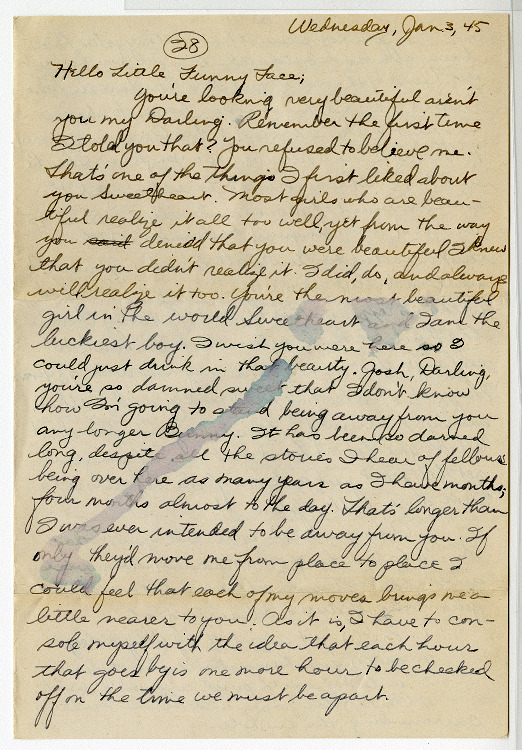 Wednesday, Jan 3, 45
28
Hello Little Funny Face;
You're looking very beautiful aren't
you my Darling. Remember the first time
I told you that? You refused to believe me.
That's one of the things I first liked about
you Sweetheart. Most girls who are beau-
tiful realize it all too well, yet from the way
you said denied that you were beautiful I knew
that you didn't realize it. I did, do, and always
will realize it too. You're the most beautiful
girl in the world Sweetheart and I am the
luckiest boy. I wish you were here so I
could just drink in that beauty. Gosh, Darling,
you're so damned sweet that I don't know
how I'm going to stand being away from you
any longer Bunny. It has been so darned
long, despite all the stories I hear of fellows
being over here as many years as I have months;
four months almost to the day. That's longer than
I was ever intended to be away from you. If
only they'd move me from place to place I
could feel that each of my moves brings me a
little nearer to you. As it is, I have to con-
sole myself with the idea that each hour
that goes by is one more hour to be checked
off on the time we must be apart.